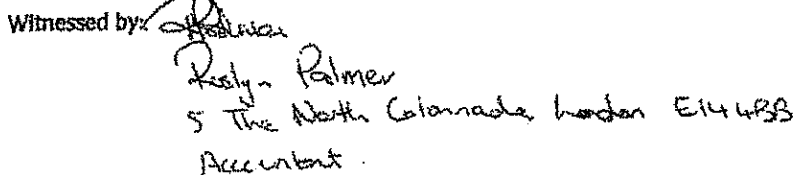 Witnessed by:
Roslyn Palmer
5 The North Colonnade London E14 4BB
Accountant.